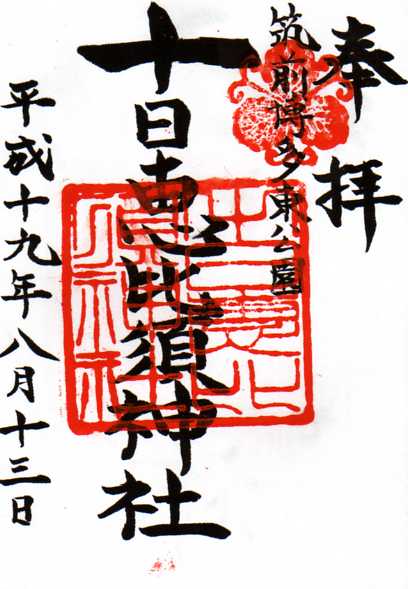 奉拝
筑前博多東公園
十日恵比須神社
平成十九年八月十三日